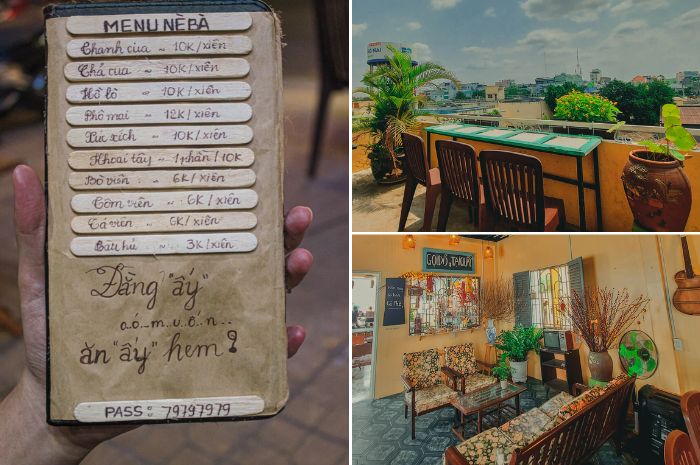 MENU NÈBÀ
Thanh cua ~ 10K/xiên
Chả cua ~ 10K/xiên
Hồ lô ~ 10K/xiên
Phô mai ~ 12K/xiên
Xúc xích ~ 10K/xiên
Khoai tây ~ 1phần/10K
Bò viên ~ 6K/xiên
Tôm viên ~ 6K/xiên
Cá viên ~ 6K/xiên
Đậu hủ ~ 3K/xiên
Đằng "ấy"
có..m..u..ố..n..
ăn "ấy" hem?
PASS: 79797979